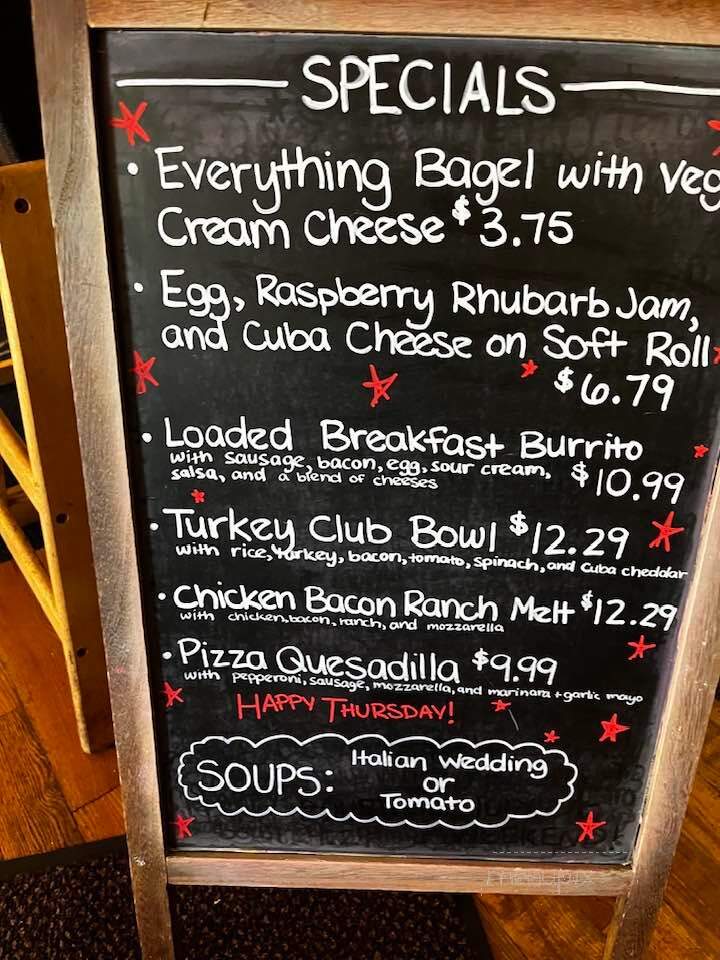 SPECIALS
• Everything Bagel with Veg
Cream Cheese $3.75
• Egg, Raspberry Rhubarb Jam,
and Cuba Cheese on Soft Roll
$6.79
• Loaded Breakfast Burrito
with sausage, bacon, egg, sour cream,
salsa, and a blend of cheeses $10.99
• Turkey Club Bowl $12.29
with rice, turkey, bacon, tomato, spinach, and Cuba cheddar
• Chicken Bacon Ranch Melt $12.29
with chicken, bacon, ranch, and mozzarella
• Pizza Quesadilla $9.99
with pepperoni, sausage, mozzarella, and marinara + garlic mayo
HAPPY THURSDAY!
SOUPS: Italian Wedding
or
Tomato